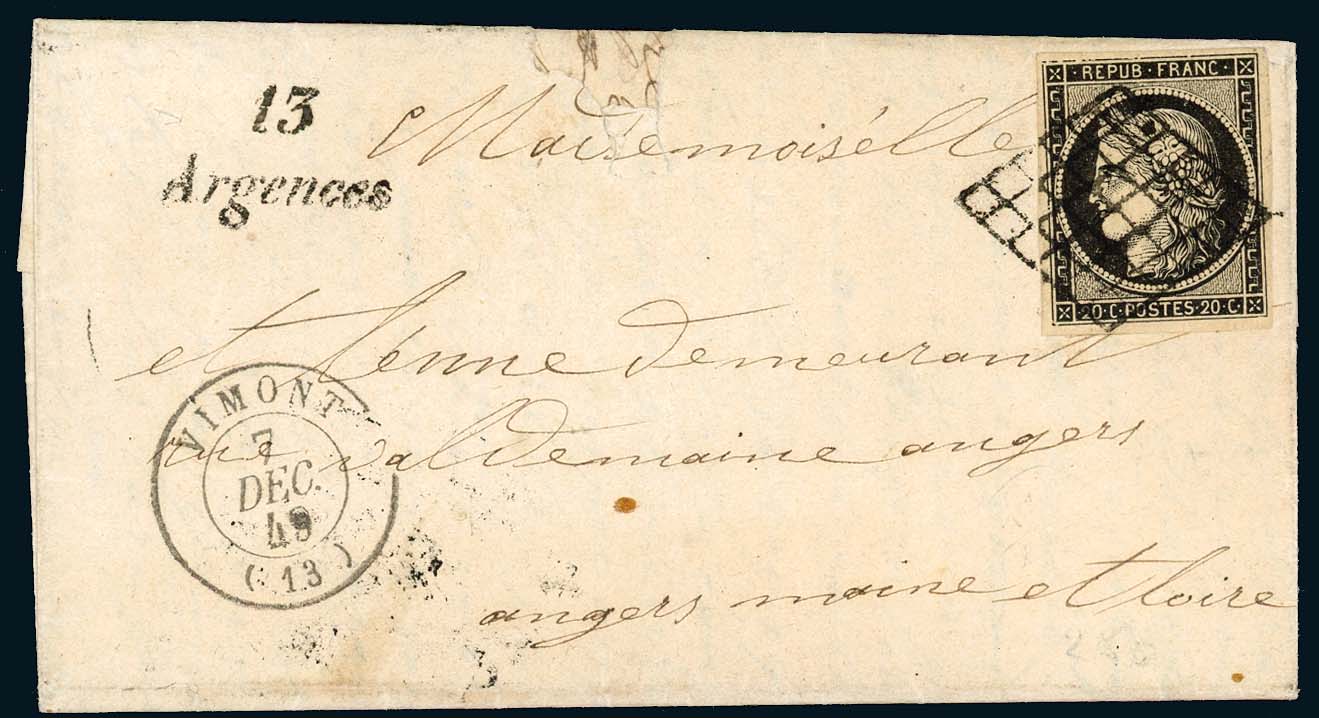 13
Argences
Mademoisélle
REPUB·FRANC·
20·C·POSTES·20·C
et demeurant
VIMONT
rue valdemaine angers
7
DEC.
49
(13)
angers maine et loire